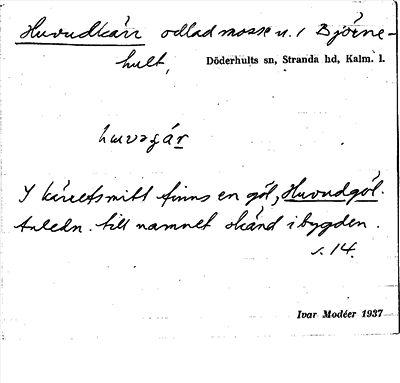 Huvudkärr odlad mosse u. 1 Björne-
hult,
Döderhults sn, Stranda hd, Kalm. l.
I kärrets mitt finns en göl, Huvudgöl.
Anledn. till namnet okänd i bygden.
s. 14.
Ivar Modéer 1937